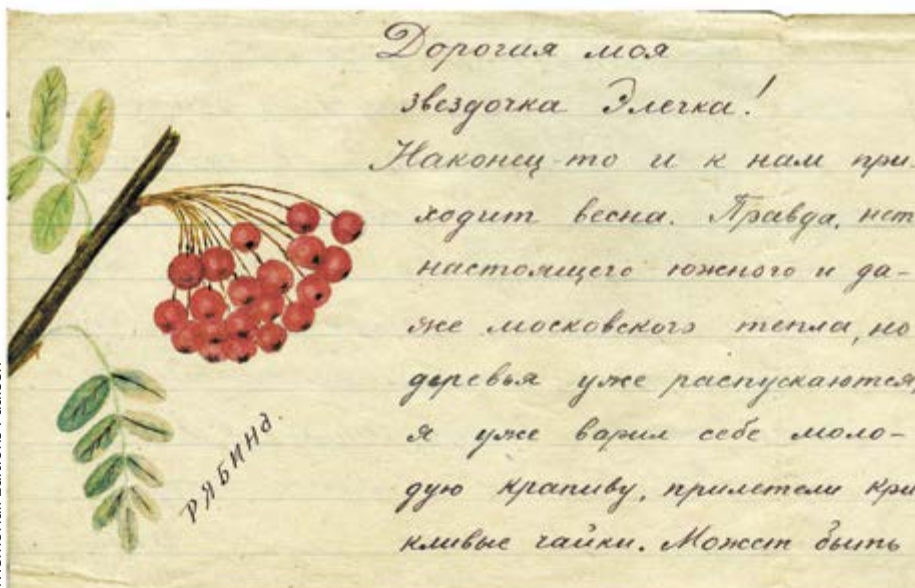 Дорогая моя
звездочка Элечка!
Наконец-то и к нам при
ходит весна. Правда, нет
настоящего южного и да-
же московского тепла, но
деревья уже распускаются,
я уже варил себе моло-
дую крапиву, прилетели кри
кливые чайки. Может быть
РЯБИНА.